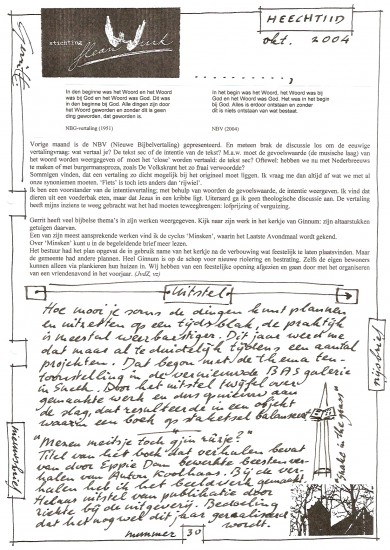 HEECHTIID
okt. 2004
stichting
In den beginne was het Woord en het Woord
was bij God en het Woord was God. Dit was
in den beginne bij God. Alle dingen zijn door
het Woord geworden en zonder dit is geen
ding geworden, dat geworden is.
NBG-vertaling (1951)
In het begin was het Woord, het Woord was
bij God en het Woord was God. Het was in het begin
bij God. Alles is erdoor ontstaan en zonder
dit is niets ontstaan van wat bestaat.
NBV (2004)
Vorige maand is de NBV (Nieuwe Bijbelvertaling) gepresenteerd. En meteen brak de discussie los om de eeuwige
vertalingsvraag: wat vertaal je? De tekst sec of de intentie van de tekst? M.a.w. moet de gevoelswaarde (de musische laag) van
het woord worden weergegeven of moet het 'close' worden vertaald: de tekst sec? Oftewel: hebben we nu met Nederbreeuws
te maken of met burgermansproza, zoals De Volkskrant het zo fraai verwoordde?
Sommigen vinden, dat een vertaling zo dicht mogelijk bij het origineel moet liggen. Ik vraag me dan altijd af wat we met al
onze synoniemen moeten. 'Fiets' is toch iets anders dan 'rijwiel'.
Ik ben een voorstander van de intentievertaling; met behulp van woorden de gevoelswaarde, de intentie weergeven. Ik vind dat
dieren uit een voederbak eten, maar dat Jezus in een kribbe ligt. Uiteraard ga ik geen theologische discussie aan. De vertaling
heeft mijns inziens te weeg gebracht wat het had moeten teweegbrengen: lofprijzing of verguizing.
Gerrit heeft veel bijbelse thema's in zijn werken weergegeven. Kijk naar zijn werk in het kerkje van Ginnum: zijn altaarstukken
getuigen daarvan.
Een van zijn meest aansprekende werken vind ik de cyclus 'Minsken', waarin het Laatste Avondmaal wordt gekend.
Over 'Minsken' kunt u in de begeleidende brief meer lezen.
Het bestuur had het plan opgevat de in gebruik name van het kerkje na de verbouwing wat feestelijk te laten plaatsvinden. Maar
de gemeente had andere plannen. Heel Ginnum is op de schop voor nieuwe riolering en bestrating. Zelfs de eigen bewoners
kunnen alleen via plankieren hun huizen in. Wij hebben van een feestelijke opening afgezien en gaan door met het organiseren
van een vriendenavond in het voorjaar. (JvdZ, vz)
Uitstel
Hoe mooi je soms de dingen kunt plannen
en uitzetten op een tijdsblak, de praktijk
is meestal weerbarstiger. Dit jaar werd me
dat maar al te duidelijk tijdens een aantal
projekten. Dat begon met de thema ten-
toonstelling in de vernieuwde BAS galerie
in Sneek. Door het uitstel twijfel over
gemaakte werk en dus opnieuw aan
de slag, dat resulteerde in een objekt
waarin een boek op staketsel balanseert
"Menen meitsje toch gjin rûzje?"
Titel van het boek dat verhalen bevat
van door Eppie Dam bewerkte beesten ver-
halen van Anton Koolhaas. Bij de ver-
halen heb ik het beeldwerk gemaakt.
Helaas uitstel van publicatie door
ziekte bij de uitgeverij. Bedoeling
dat het nog wel dit jaar gerealiseerd
wordt.
"snake in the grass"
nijsbrief
nummer 30